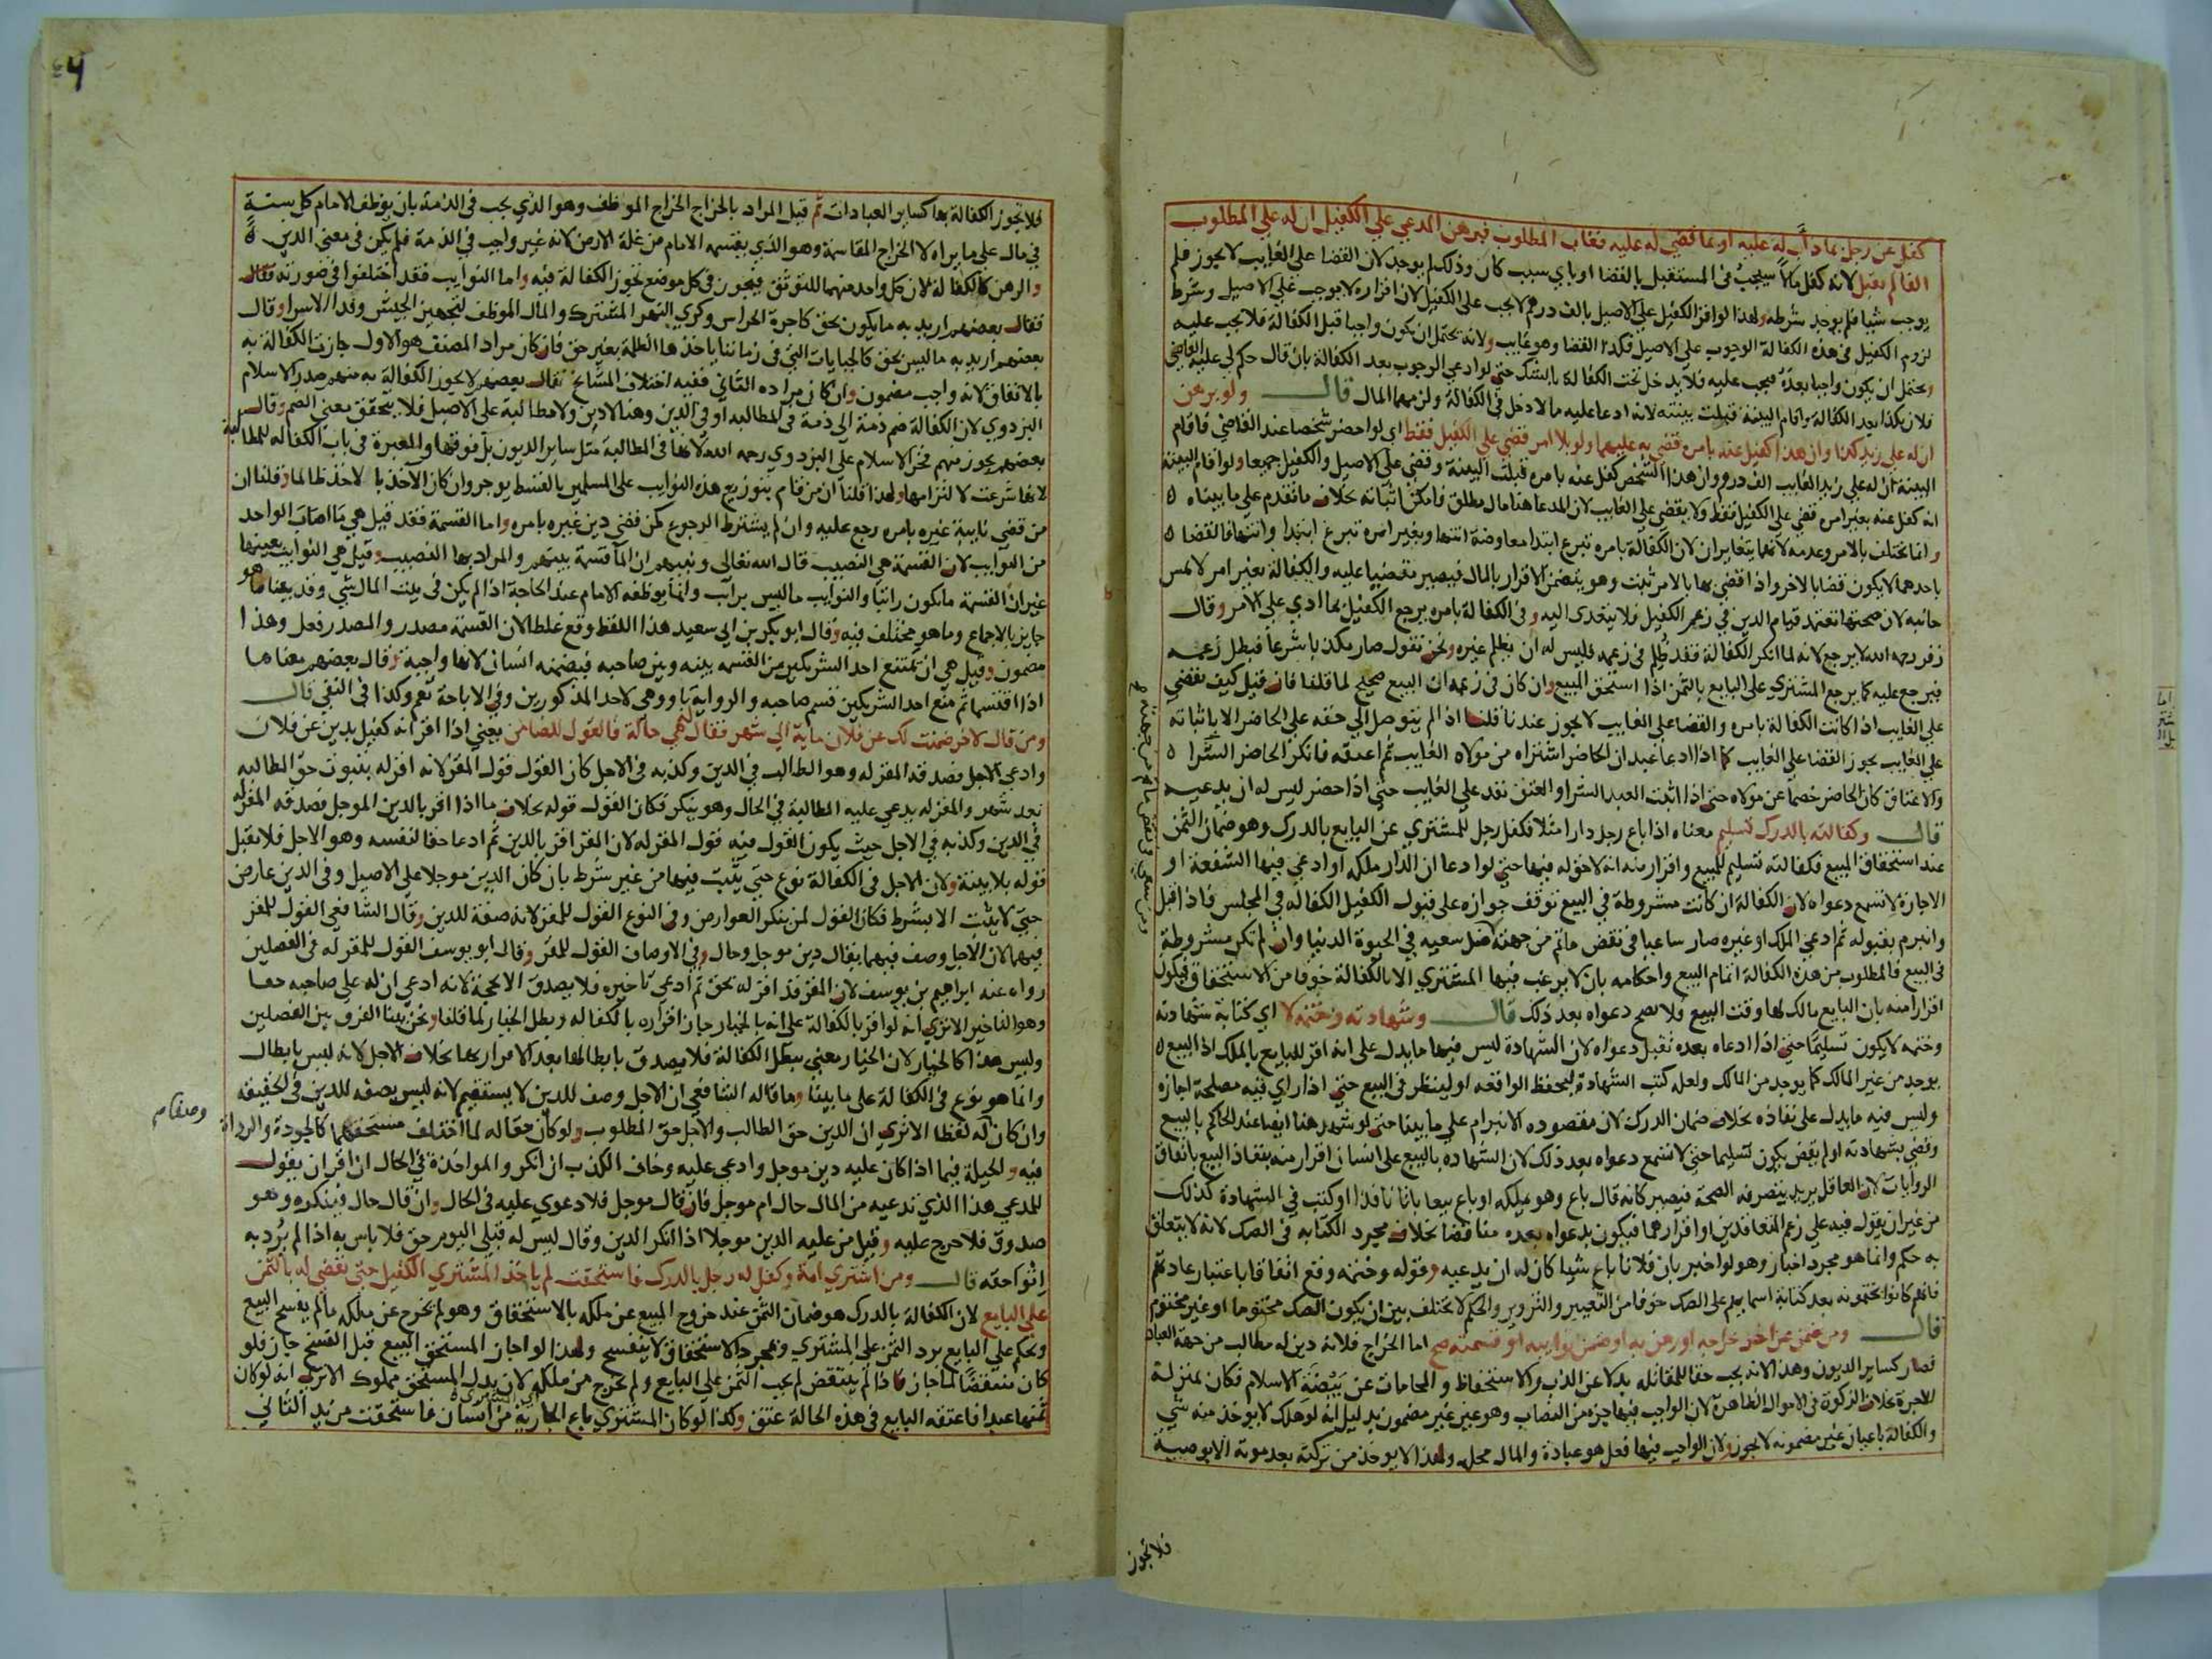 كفل عن رجل بما ذاب له عليه او بما قضي له عليه فغاب المطلوب فبرهن المدعي علي الكفيل ان له علي المطلوب
الفا لم يقبل لانه كفل مالا سيجب في المستقبل بالقضا او باي سبب كان وذلك لم يوجد لان القضا علي الغايب لا يجوز فلم
يوجب شيا فلم يوجد شرطه ولهذا لو اقر الكفيل علي الاصيل بالف درهم لا يجب علي الكفيل لان اقراره لا يوجب علي الاصيل وشرط
لزوم الكفيل في هذه الكفالة الوجوب علي الاصيل فكذا القضا وهو غايب ولانه يحتمل ان يكون واجبا قبل الكفالة فلا يجب عليه
ويحتمل ان يكون واجبا بعده فيجب عليه فلا يدخل تحت الكفالة بالشك حتي لو ادعي الوجوب بعد الكفالة بان قال حكم لي عليه القاضي
فلان بكذا بعد الكفالة واقام البينة قبلت بينته لانه ادعا عليه مالا دخل في الكفالة ولزمهما المال قال ولو برهن
ان له علي زيد كذا وان هذا كفيل عنه بامره قضي به عليهما ولو بلا امر قضي علي الكفيل فقط اي لو احضر شخصا عند القاضي فاقام
البينة ان له علي زيد الغايب الف درهم وان هذا الشخص كفل عنه بامره قبلت البينة وقضي علي الاصيل والكفيل جميعا ولو اقام البينة
انه كفل عنه بغير امره قضي علي الكفيل فقط ولا يقضي علي الغايب لان المدعا هنا مال مطلق فامكن اثباته بخلاف ما تقدم علي ما بيناه
وانما يختلف بالامر وعدمه لانهما يتغايران لان الكفالة بامره تبرع ابتدا معاوضة انتها وبغير امره تبرع ابتدا وانتها فالقضا
باحدهما لا يكون قضا بالاخر واذا قضي بها بالامر ثبت وهو يتضمن الاقرار بالمال فيصير مقضيا عليه والكفالة بغير امر لا تمس
جانبه لان صحتها تعتمد قيام الدين في زعم الكفيل فلا يتعدي اليه وفي الكفالة بامره يرجع الكفيل بما ادي علي الامر وقال
زفر رحمه الله لا يرجع لانه لما انكر الكفالة فقد ظلم في زعمه فليس له ان يظلم غيره ونحن نقول صار مكذبا شرعا فبطل زعمه
فيرجع عليه كما يرجع المشتري علي البايع بالثمن اذا استحق المبيع وان كان في زعمه ان البيع صحيح لما قلنا فان قيل كيف يقضي
علي الغايب اذا كانت الكفالة بامره والقضا علي الغايب لا يجوز عندنا قلنا اذا لم يتوصل الي حقه علي الحاضر الا باثباته
علي الغايب يجوز القضا علي الغايب كما اذا ادعا عبد ان الحاضر اشتراه من مولاه الغايب ثم اعتقه فانكر الحاضر الشرا
والاعتاق كان الحاضر خصما عن مولاه حتي اذا اثبت العبد الشرا والعتق نفد علي الغايب حتي اذا حضر ليس له ان يدعيه
قال وكفالته بالدرك تسليم معناه اذا باع رجل دارا مثلا فكفل رجل للمشتري عن البايع بالدرك وهو ضمان الثمن
عند استحقاق المبيع فكفالته تسليم للمبيع واقرار منه انه لا حق له فيها حتي لو ادعا ان الدار ملكه او ادعي فيها الشفعة او
الاجارة لا تسمع دعواه لان الكفالة ان كانت مشروطة في البيع توقف جوازه علي قبول الكفيل الكفالة في المجلس فاذا قبل
وانبرم بقبوله ثم ادعي الملك او غيره صار ساعيا في نقض ما تم من جهته ضل سعيه في الحيوة الدنيا وان لم تكن مشروطة
في البيع فالمطلوب من هذه الكفالة اتمام البيع واحكامه بان لا يرغب فيها المشتري الا بالكفالة خوفا من الاستحقاق فيكون
اقرارا منه بان البايع مالك لها وقت البيع فلا يصح دعواه بعد ذلك قال وشهادته وختمه لا اي كتابة شهادته
وختمه لا يكون تسليما حتي اذا ادعاه بعده تقبل دعواه لان الشهادة ليس فيها ما يدل علي انه اقر للبايع بالملك اذ البيع
يوجد من غير المالك كما يوجد من المالك ولعله كتب الشهادة ليحفظ الواقعه او لينظر في البيع حتي اذا راي فيه مصلحة اجازه
وليس فيه ما يدل علي نفاذه بخلاف ضمان الدرك لان مقصوده الانبرام علي ما بينا حتي لو شهد هنا ايضا عند الحاكم بالبيع
وقضي بشهادته او لم يقض يكون تسليما حتي لا تسمع دعواه بعد ذلك لان الشهادة بالبيع علي انسان اقرار منه بنفاذ البيع باتفاق
الروايات لان العاقل يريد بتصرفه الصحة فيصير كانه قال باع وهو يملكه او باع بيعا باتا نافذا او كتب في الشهادة كذلك
من غير ان يقول فيه علي زعم المتعاقدين او اقرارهما فيكون بدعواه بعده مناقضا بخلاف مجرد الكتابه في الصك لانه لا يتعلق
به حكم وانما هو مجرد اخبار وهو لو اخبر بان فلانا باع شيا كان له ان يدعيه وقوله وختمه وقع اتفاقا باعتبار عادتهم
فانهم كانوا يختمونه بعد كتابة اسمايهم علي الصك خوفا من التغيير والتزوير والحكم لا يختلف بين ان يكون الصك مختوما او غير مختوم
قال ومن ضمن عن اخر خراجه او رهن به او ضمن نوايبه او قسمته صح اما الخراج فلانه دين له مطالب من جهة العباد
فصار كساير الديون وهذا لانه يجب حقا للمقاتله بدلا عن الذب والاستحفاظ والمحامات عن بيضة الاسلام فكان بمنزلة
الاجرة بخلاف الزكوة في الاموال الظاهرة لان الواجب فيها جزء من النصاب وهو عين غير مضمون بدليل انه لو هلك لا يوخذ منه شي
والكفالة باعيان غير مضمونه لا يجوز ولان الواجب فيها فعل هو عبادة والمال محله ولهذا لا يوخذ من تركته بعد موته الا بوصية
فلا تجوز
فلا تجوز الكفالة بها كساير العبادات ثم قيل المراد بالخراج الخراج الموظف وهو الذي يجب في الذمة بان يوظف الامام كل سنة
في مال علي ما يراه لا الخراج المقاسمة وهو الذي يقسمه الامام من غلة الارض لانه غير واجب في الذمة فلم يكن في معني الدين
والرهن كالكفالة لان كل واحد منهما للتوثق فيجوز في كل موضع تجوز الكفالة فيه واما النوايب فقد اختلفوا في صورته فقال
فقال بعضهم اريد به ما يكون بحق كاجرة الحراس وكري النهر المشترك والمال الموظف لتجهيز الجيش وفدا الاسرا وقال
بعضهم اريد به ما ليس بحق كالجبايات التي في زماننا ياخذها الظلمة بغير حق فان كان مراد المصنف هو الاول جازت الكفالة به
بالاتفاق لانه واجب مضمون وان كان مراده الثاني ففيه اختلاف المشايخ فقال بعضهم لا يجوز الكفالة به منهم صدر الاسلام
البزدوي لان الكفالة ضم ذمة الي ذمة في المطالبه او في الدين وهنا لا دين ولا مطالبة علي الاصيل فلا يتحقق معني الضم وقال
بعضهم يجوز منهم فخر الاسلام علي البزدوي رحمه الله لانها في المطالبة مثل ساير الديون بل فوقها والعبرة في باب الكفالة للمطالبة
لانها شرعت لالتزامها ولهذا قلنا ان من قام بتوزيع هذه النوايب علي المسلمين بالقسط يوجر وان كان الاخذ بالاخذ ظالما وقلنا ان
من قضي نايبة غيره بامره رجع عليه وان لم يشترط الرجوع كمن قضي دين غيره بامره واما القسمة فقد قيل هي ما اصاب الواحد
من النوايب لان القسمة هي النصيب قال الله تعالي ونبيهم ان الماء قسمة بينهم والمراد بها النصيب وقيل هي النوايب بعينها
غير ان القسمة ما يكون راتبا والنوايب ما ليس براتب وانما يوظفه الامام عند الحاجة اذا لم يكن في بيت المال شي وقد بينا ما هو
جايز بالاجماع وما هو مختلف فيه وقال ابو بكر بن ابي سعيد هذا اللفظ وقع غلطا لان القسمة مصدر والمصدر فعل وهذا
مضمون وقيل هي ان يمتنع احد الشريكين من القسمه بينه وبين صاحبه فيضمنه انسان لانها واجبة وقال بعضهم معناها
اذا اقتسما ثم منع احد الشريكين قسم صاحبه والرواية باو وهي لاحد المذكورين وفي الاباحة تعم وكذا في النفي قال
ومن قال لاخر ضمنت لك عن فلان ماية الي شهر فقال هي حالة فالقول للضامن يعني اذا اقر انه كفيل بدين عن فلان
وادعي الاجل فصدقه المقر له وهو الطالب في الدين وكذبه في الاجل كان القول قول المقر لانه اقر له بثبوت حق المطالبه
بعد شهر والمقر له يدعي عليه المطالبة في الحال وهو ينكر فكان القول قوله بخلاف ما اذا اقر بالدين الموجل فصدقه المقر له
في الدين وكذبه في الاجل حيث يكون القول فيه قول المقر له لان المقر اقر بالدين ثم ادعا حقا لنفسه وهو الاجل فلا يقبل
قوله بلا بينة ولان الاجل في الكفالة نوع حتي يثبت فيها من غير شرط بان كان الدين موجلا علي الاصيل وفي الدين عارض
حتي لا يثبت الا بشرط فكان القول لمن ينكر العوارض وفي النوع القول للمقر لانه صفة للدين وقال الشافعي القول للمقر
فيهما لان الاجل وصف فيهما يقال دين موجل وحال وفي الاوصاف القول للمقر وقال ابو يوسف القول للمقر له في الفصلين
رواه عنه ابراهيم بن يوسف لان المقر قد اقر له بحق ثم ادعي تاخيره فلا يصدق الا بحجة لانه ادعي ان له علي صاحبه حقا
وهو التاخير الا تري انه لو اقر بالكفالة علي انه بالخيار جاز اقراره بالكفاله وبطل الخيار لما قلنا ونحن بينا الفرق بين الفصلين
وليس هذا كالخيار لان الخيار معني يبطل الكفالة فلا يصدق بابطالها بعد الاقرار بها بخلاف الاجل لانه ليس بابطال
وانما هو نوع في الكفالة علي ما بينا وما قاله الشافعي ان الاجل وصف للدين لا يستقيم لانه ليس بصفه للدين في الحقيقه
وان كان له لفظا الا تري ان الدين حق الطالب والاجل حق المطلوب ولو كان صفة له لما اختلف مستحقهما كالجودة والرداة
فيه والحيلة فيما اذا كان عليه دين موجل وادعي عليه وخاف الكذب ان انكر والمواخذة في الحال ان اقر ان يقول
للمدعي هذا الذي تدعيه من المال حال ام موجل فان قال موجل فلا دعوي عليه في الحال وان قال حال فينكره وهو
صدوق فلا حرج عليه وقيل من عليه الدين موجلا اذا انكر الدين وقال ليس له قبلي اليوم حق فلا باس به اذا لم يرد به
اتوا حقه قال ومن اشتري امة وكفل له رجل بالدرك فاستحقت لم ياخذ المشتري الكفيل حتي يقضي له بالثمن
علي البايع لان الكفالة بالدرك هو ضمان الثمن عند خروج المبيع عن ملكه بالاستحقاق وهو لم يخرج عن ملكه ما لم يفسخ البيع
ويحكم علي البايع برد الثمن علي المشتري وبمجرد الاستحقاق لا ينفسخ ولهذا لو اجاز المستحق البيع قبل الفسخ جاز فلو
كان منتقضا لما جاز فاذا لم ينتقض لم يجب الثمن علي البايع ولم يخرج من ملكه لان بدل المستحق مملوك الا تري انه لو كان
ثمنها عبدا فاعتقه البايع في هذه الحالة عتق وكذا لو كان المشتري باع الجارية من انسان فاستحقت من يد الثاني